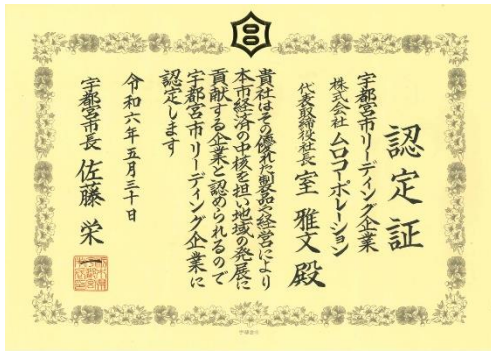 認定証
宇都宮市リーディング企業
株式会社 ムロコーポレーション
代表取締役社長 室 雅文 殿
貴社はその優れた製品や経営により
本市経済の中核を担い地域の発展に
貢献する企業と認められるので
宇都宮市リーディング企業に
認定します
令和六年五月三十日
宇都宮市長 佐藤 栄一